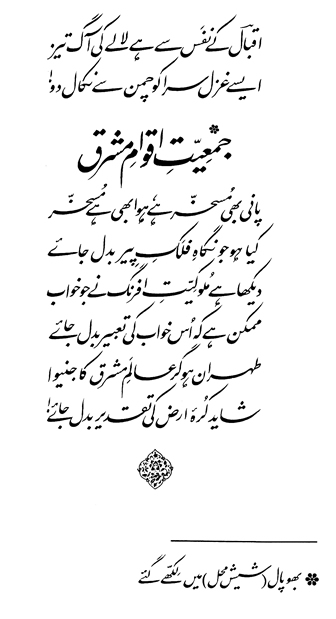 اقبالؔ کے نفَس سے ہے لالے کی آگ تیز
ایسے غزل سرا کو چمن سے نکال دو!
جمعیّتِ اقوامِ مشرق*
پانی بھی مُسخّر ہے ہوا بھی ہے مُسخّر
کیا ہو جو نگاہِ فلکِ پِیر بدل جائے
دیکھا ہے مُلوکیّتِ افرنگ نے جو خواب
ممکن ہے کہ اُس خواب کی تعبیر بدل جائے
طہران ہو گر عالَمِ مشرق کا جنیوا
شاید کُرۂ ارض کی تقدیر بدل جائے!
* بھوپال (شیش محل) میں لِکھّے گئے